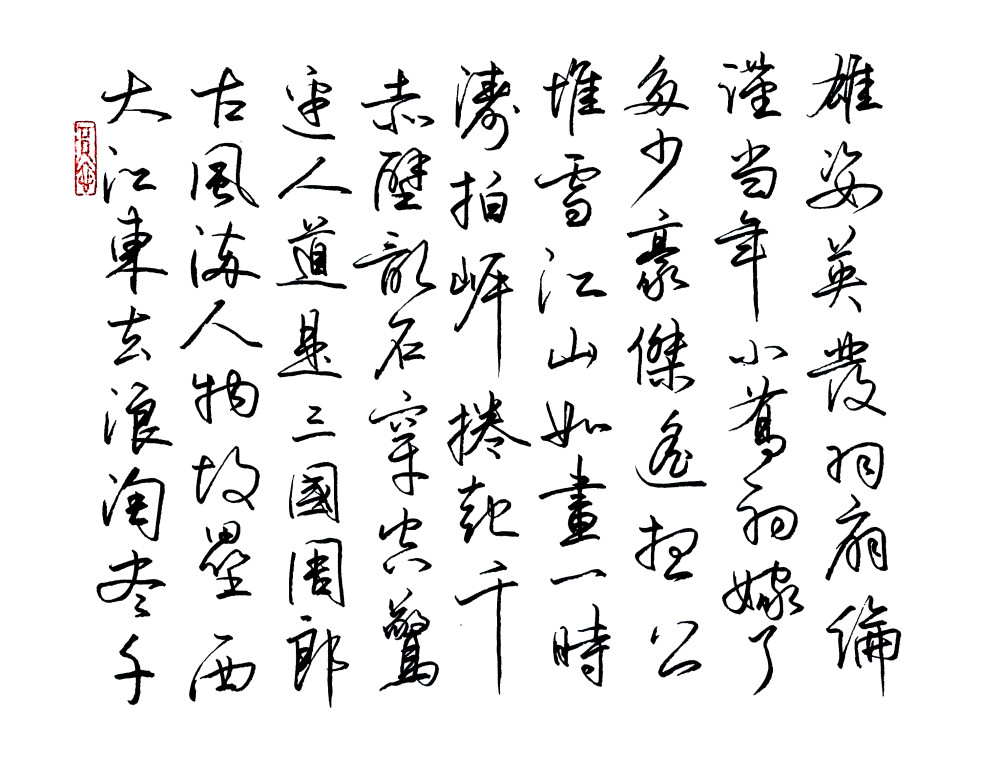 大江東去浪淘尽千
古風流人物故壘西
邊人道是三國周郎
赤壁亂石穿空驚
濤拍岸捲起千
堆雪江山如畫一時
多少豪傑遙想公
謹当年小喬初嫁了
雄姿英發羽扇綸